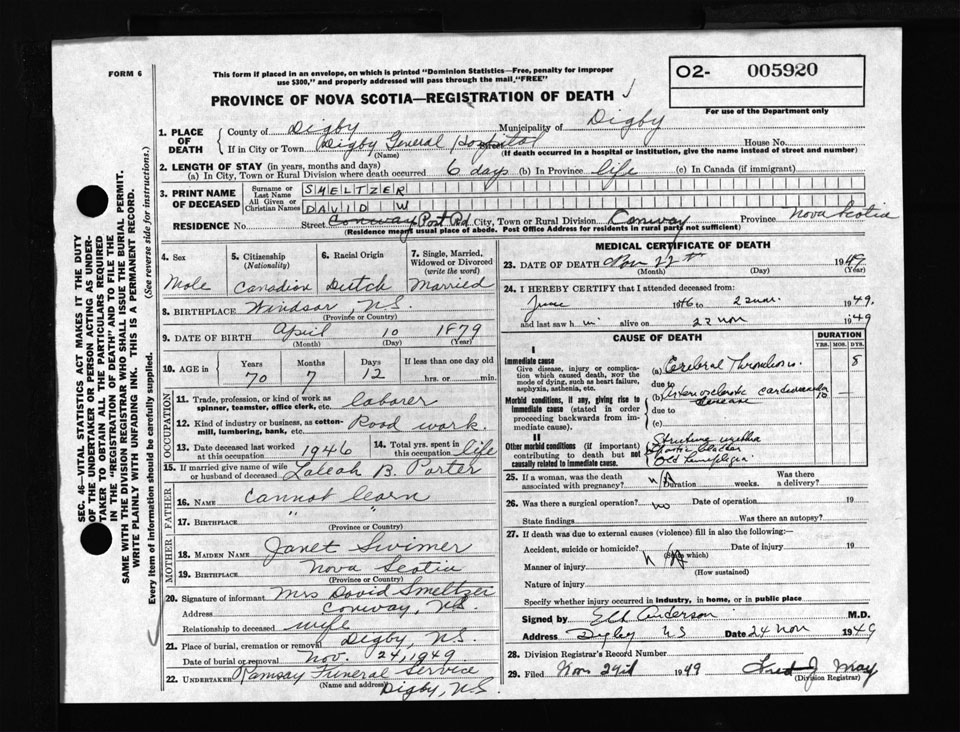 FORM 6
This form if placed in an envelope, on which is printed "Dominion Statistics—Free, penalty for improper
use $300," and properly addressed will pass through the mail, "FREE"
O2- 005920
For use of the Department only
PROVINCE OF NOVA SCOTIA—REGISTRATION OF DEATH
1. PLACE OF DEATH
County of Digby Municipality of Digby
If in City or Town Digby General Hospital House No.
(Name) Street (If death occurred in a hospital or institution, give the name instead of street and number)
2. LENGTH OF STAY (in years, months and days)
(a) In City, Town or Rural Division where death occurred 6 days (b) In Province life (c) In Canada (if immigrant)
3. PRINT NAME OF DECEASED
Surname or Last Name SMELTZER
All Given or Christian Names DAVID W
RESIDENCE No. Street Conway Post Rd City, Town or Rural Division Conway Province Nova Scotia
(Residence means usual place of abode. Post Office Address for residents in rural parts not sufficient)
4. Sex
Male
5. Citizenship (Nationality)
Canadian
6. Racial Origin
Dutch
7. Single, Married, Widowed or Divorced (write the word)
Married
8. BIRTHPLACE Windsor, N.S.
(Province or Country)
9. DATE OF BIRTH April 10 1879
(Month) (Day) (Year)
10. AGE in Years Months Days If less than one day old
70 7 12 hrs. or min.
OCCUPATION
11. Trade, profession, or kind of work as spinner, teamster, office clerk, etc. laborer
12. Kind of industry or business, as cotton-mill, lumbering, bank, etc. Road work.
13. Date deceased last worked at this occupation 1946
14. Total yrs. spent in this occupation life
15. If married give name of wife or husband of deceased Laleah B. Porter
FATHER
16. NAME cannot learn
17. BIRTHPLACE " "
(Province or Country)
MOTHER
18. MAIDEN NAME Janet Swimer
19. BIRTHPLACE Nova Scotia
(Province or Country)
20. Signature of informant Mrs David Smeltzer
Address Conway, N.S.
Relationship to deceased wife
21. Place of burial, cremation or removal Digby, N.S.
Date of burial or removal Nov. 24, 1949
22. UNDERTAKER Ramsay Funeral Service
(Name and address) Digby, N.S.
MEDICAL CERTIFICATE OF DEATH
23. DATE OF DEATH Nov 22nd 1949
(Month) (Day) (Year)
24. I HEREBY CERTIFY that I attended deceased from:
June 1946 to 22 nov. 1949.
and last saw h im alive on 22 nov 1949
CAUSE OF DEATH
DURATION
YRS. MOS. DYS.
I
Immediate cause
Give disease, injury or complication which caused death, NOT the mode of dying, such as heart failure, asphyxia, asthenia, etc.
(a) Cerebral Thrombosis 8
due to
Morbid conditions, if any, giving rise to immediate cause (stated in order proceeding backwards from immediate cause).
(b) arteriosclerotic cardiovascular disease 10
due to
(c)
II
Other morbid conditions (if important) contributing to death but not causally related to immediate cause.
Stricture urethra
Old hemiplegia
25. If a woman, was the death associated with pregnancy? N A Duration weeks. Was there a delivery?
26. Was there a surgical operation? no Date of operation 19
State findings Was there an autopsy?
27. If death was due to external causes (violence) fill in also the following:—
Accident, suicide or homicide? Date of injury 19
(State which)
Manner of injury N A
(How sustained)
Nature of injury
Specify whether injury occurred in industry, in home, or in public place
Signed by Anderson M.D.
Address Digby N S Date 24 nov 1949
28. Division Registrar's Record Number
29. Filed Nov 24th 1949 Fred J May
(Division Registrar)
SEC. 46—VITAL STATISTICS ACT MAKES IT THE DUTY
OF THE UNDERTAKER OR PERSON ACTING AS UNDER-
TAKER TO OBTAIN ALL THE PARTICULARS REQUIRED
IN THE "REGISTRATION OF DEATH" AND TO FILE THE
SAME WITH THE DIVISION REGISTRAR WHO SHALL ISSUE THE BURIAL PERMIT.
WRITE PLAINLY WITH UNFADING INK. THIS IS A PERMANENT RECORD.
Every item of information should be carefully supplied. (See reverse side for instructions.)